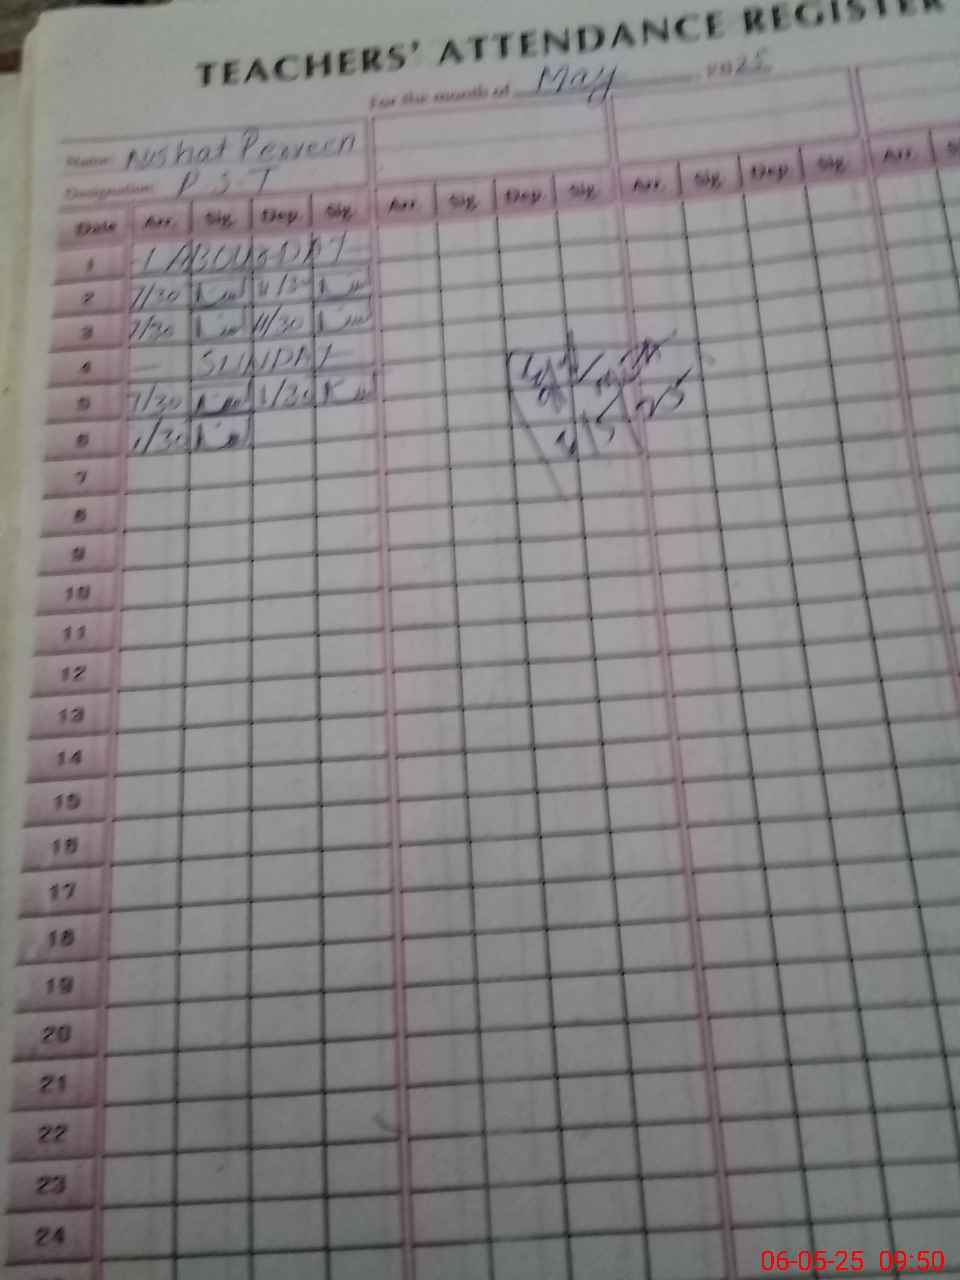 TEACHERS' ATTENDANCE REGISTER
For the month of May 2025
Name: Nushat Perveen
Designation: P.S.T
Date Arr. Sig. Dep. Sig. Arr. Sig. Dep. Sig. Arr. Sig. Dep. Sig. Arr.
1 - LABOUR DAY -
2 7/30 11/30
3 7/30 11/30
4 - SUNDAY -
5 7/30 1/30
6 7/30
7
8
9
10
11
12
13
14
15
16
17
18
19
20
21
22
23
24
06-05-25 09:50